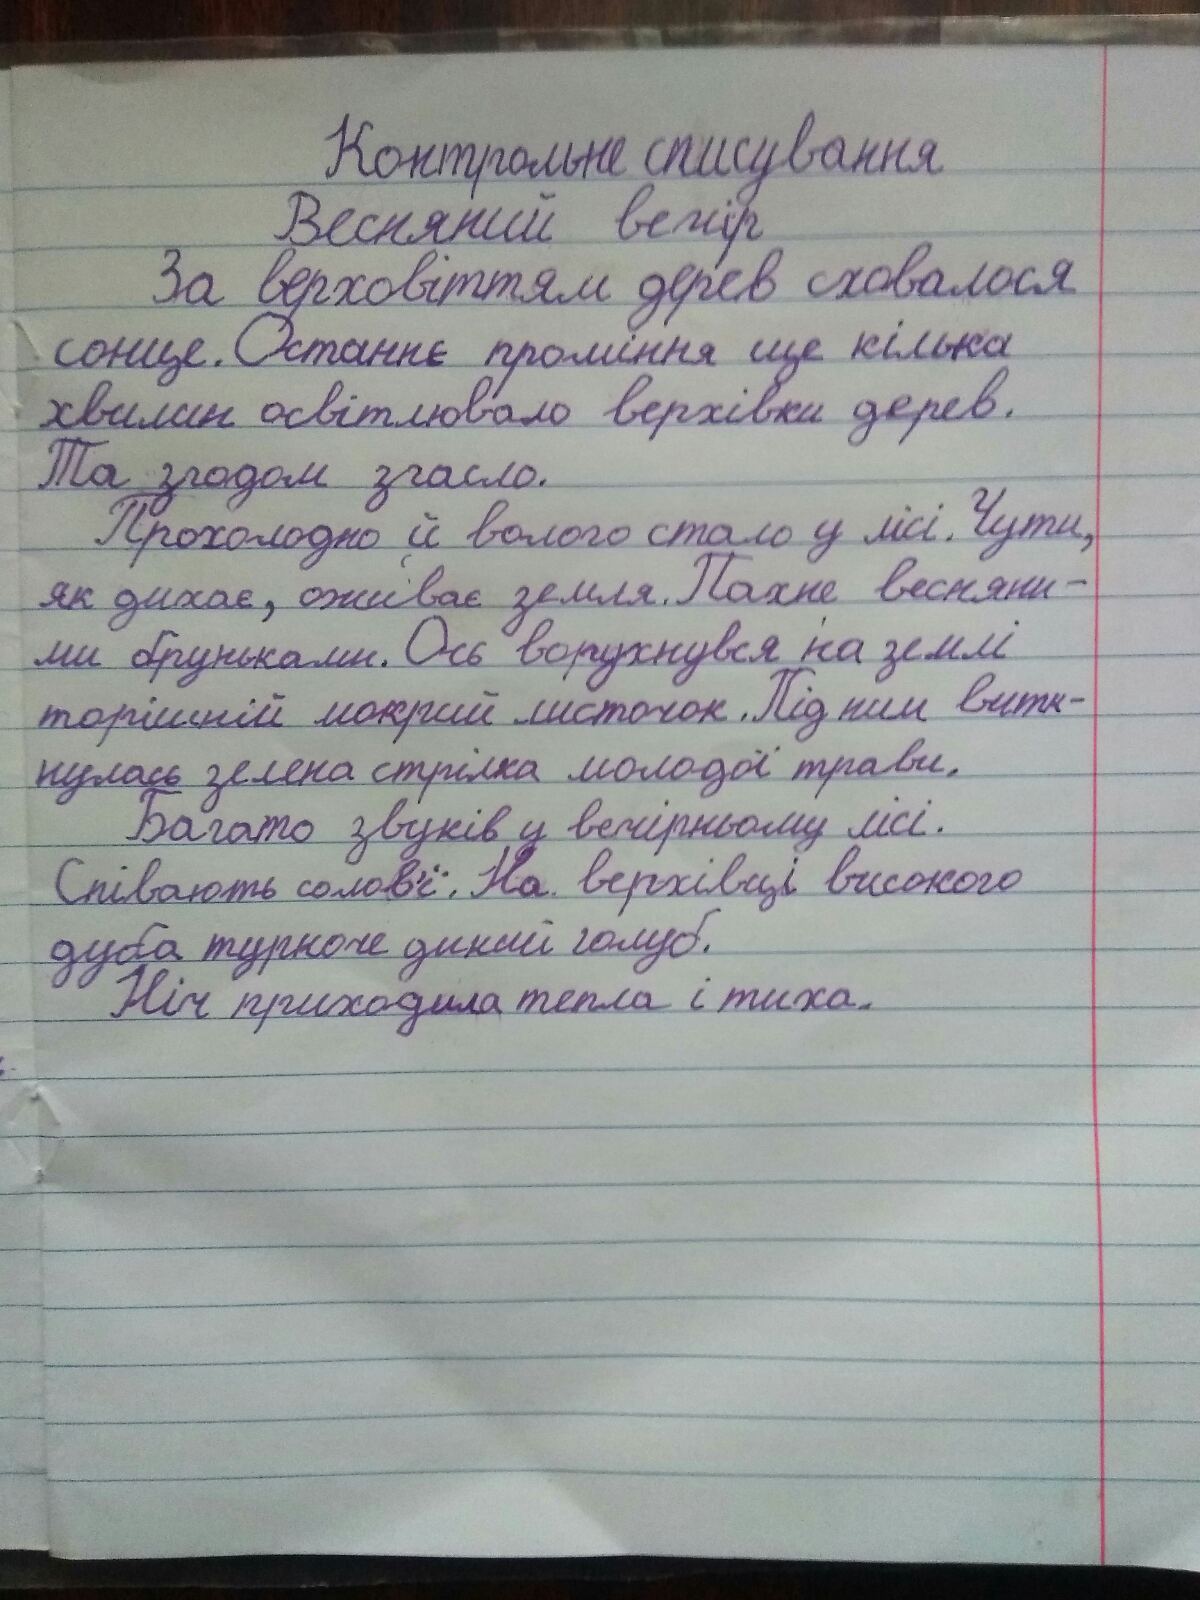 Контрольне списування
Весняний вечір
За верховіттям дерев сховалося
сонце. Останнє проміння ще кілька
хвилин освітлювало верхівки дерев.
Та згодом згасло.
Прохолодно й волого стало у лісі. Чути,
як дихає, оживає земля. Пахне весняни-
ми бруньками. Ось ворухнувся на землі
торішній мокрий листочок. Під ним витк-
нулась зелена стрілка молодої трави.
Багато звуків у вечірньому лісі.
Співають солов'ї. На верхівці високого
дуба туркоче дикий голуб.
Ніч приходила тепла і тиха.